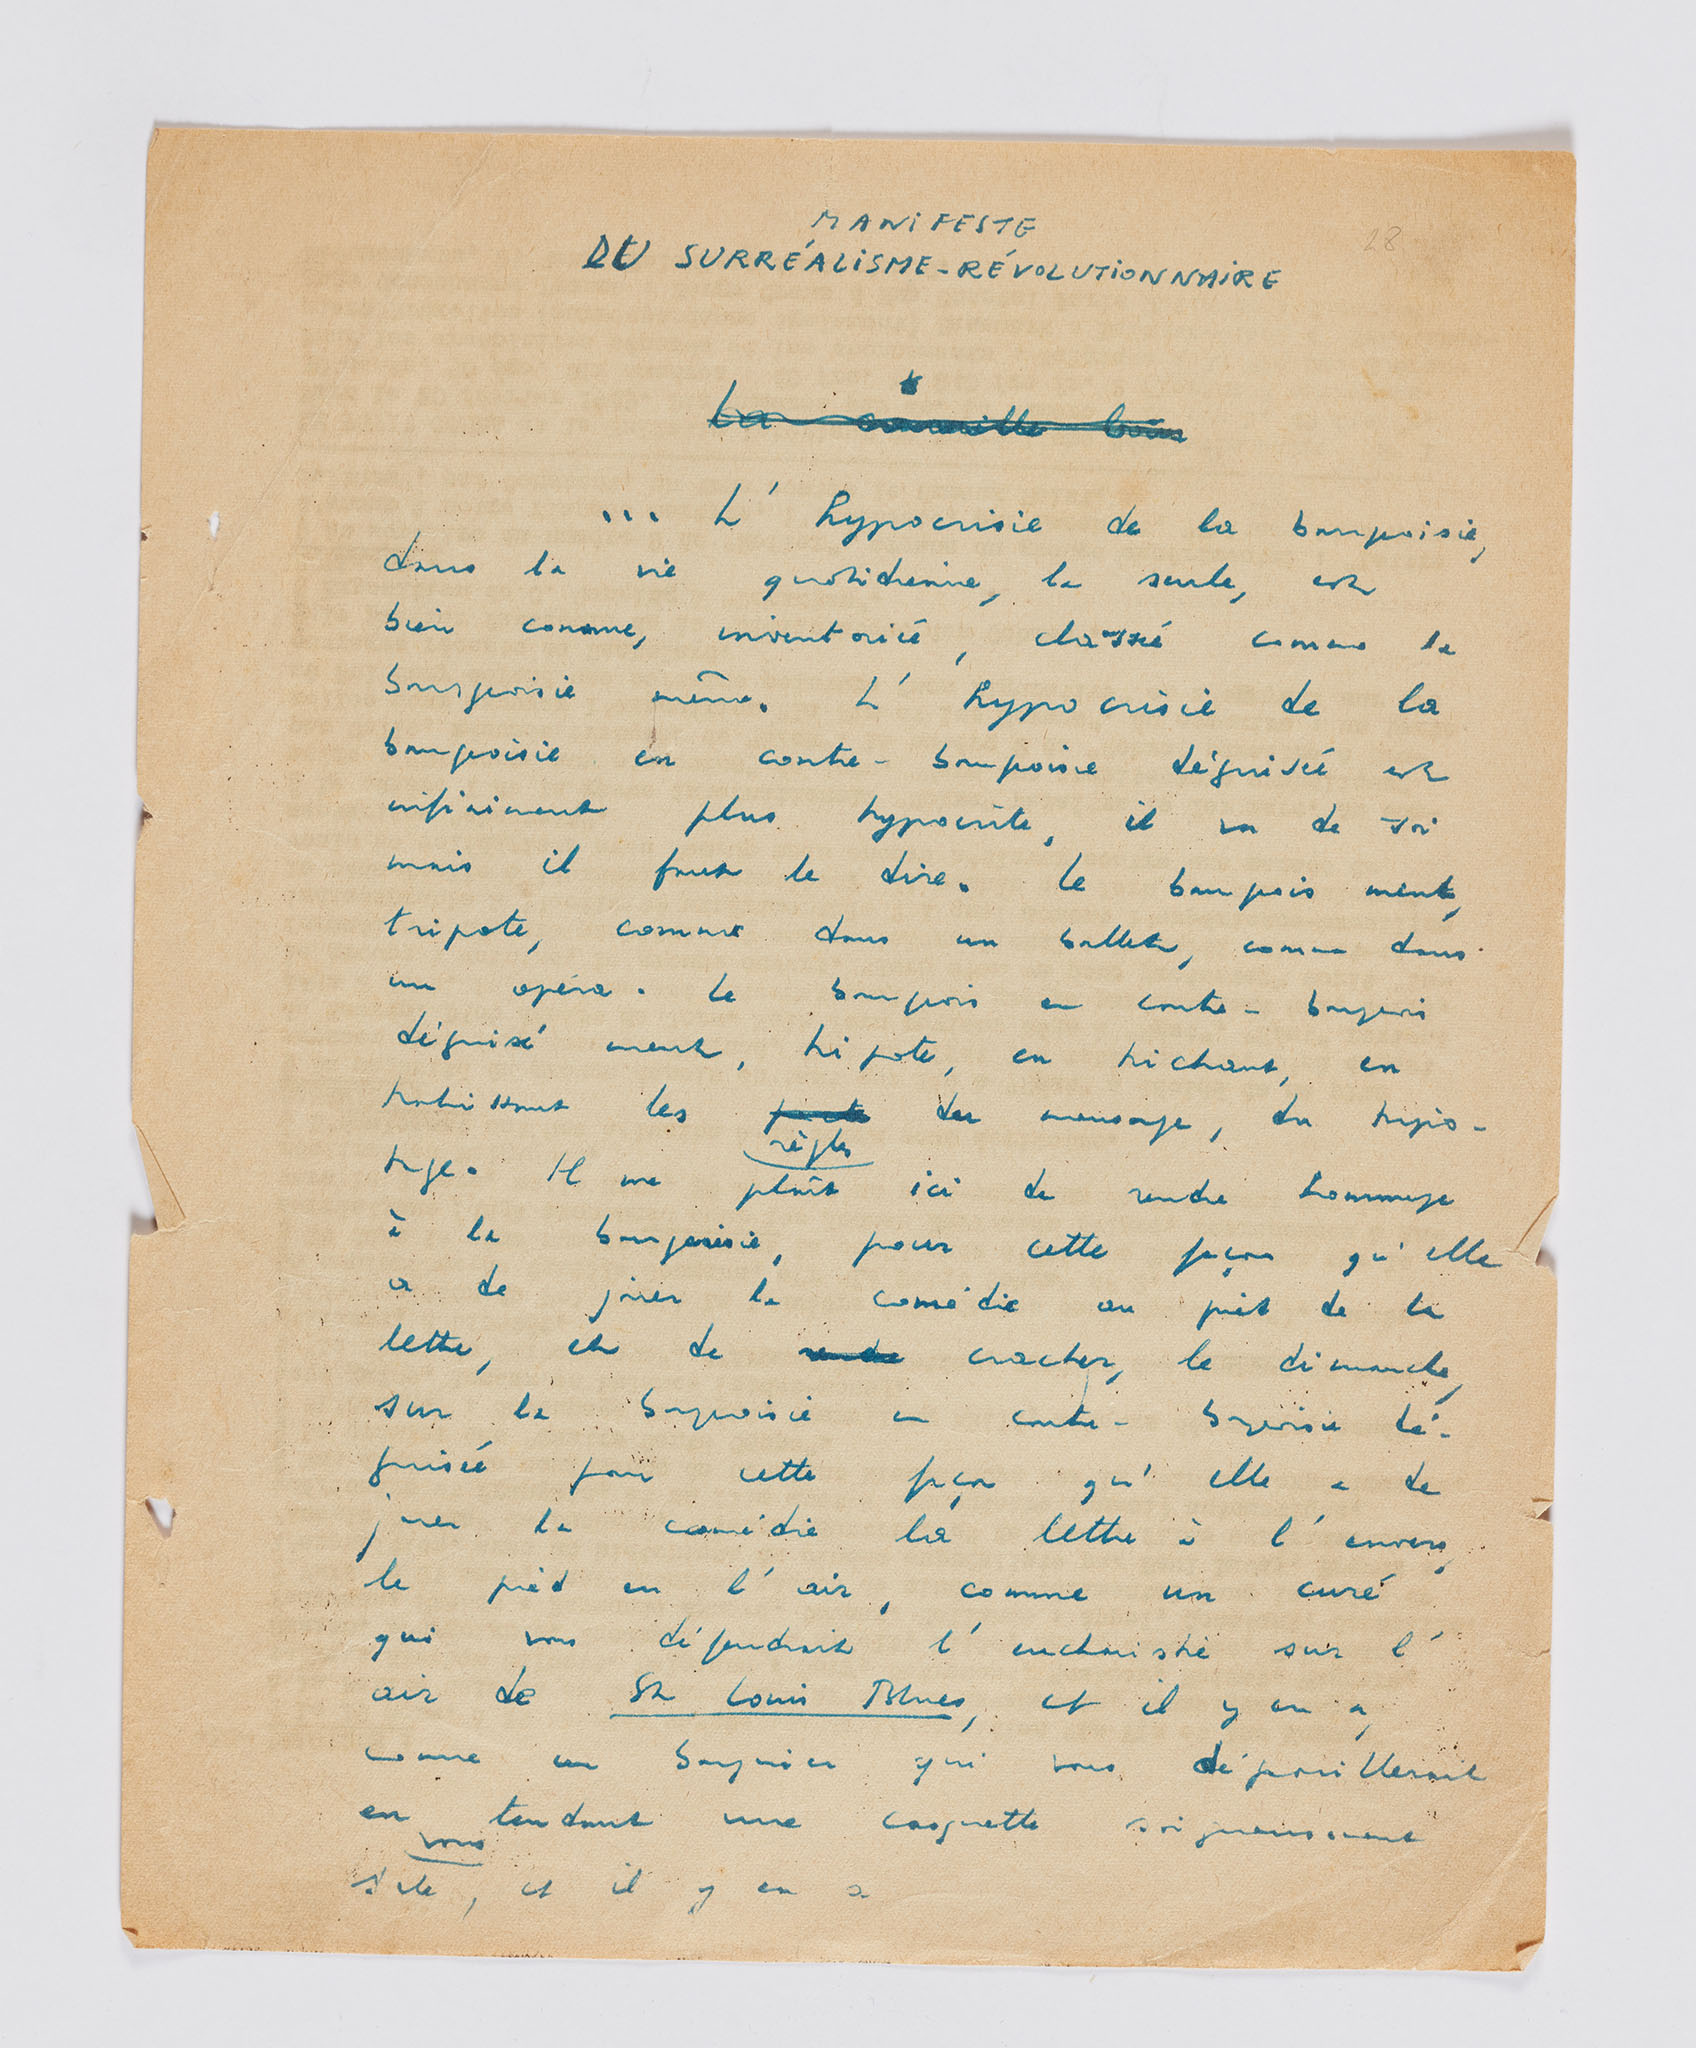 MANIFESTE
28
DU SURRÉALISME-RÉVOLUTIONNAIRE
La
... L'hypocrisie de la bourgeoisie,
dans la vie quotidienne, la seule, est
bien connue, inventorié, classé comme la
bourgeoisie même. L'hypocrisie de la
bourgeoisie en contre-bourgeoisie déguisée est
infiniment plus hypocrite, il va de soi
mais il faut le dire. Le bourgeois ment,
tripote, comme dans un ballet, comme dans
un opéra. Le bourgeois en contre-bourgeois
déguisé ment, tripote, en trichant, en
trahissant les du mensonge, du tripo-
règles
tage. Il me plaît ici de rendre hommage
à la bourgeoisie, pour cette façon qu'elle
a de jouer la comédie au pied de la
lettre, et de rendre cracher, le dimanche,
sur la bourgeoisie en contre-bourgeoisie dé-
guisée pour cette façon qu'elle a de
jouer la comédie la lettre à l'envers,
le pied en l'air, comme un curé
qui vous défendrait l'eucharistie sur l'
air de St Louis Blues, et il y en a,
comme un banquier qui vous dépouillerait
en tendant une casquette soigneusement
vous
sale, et il y en a